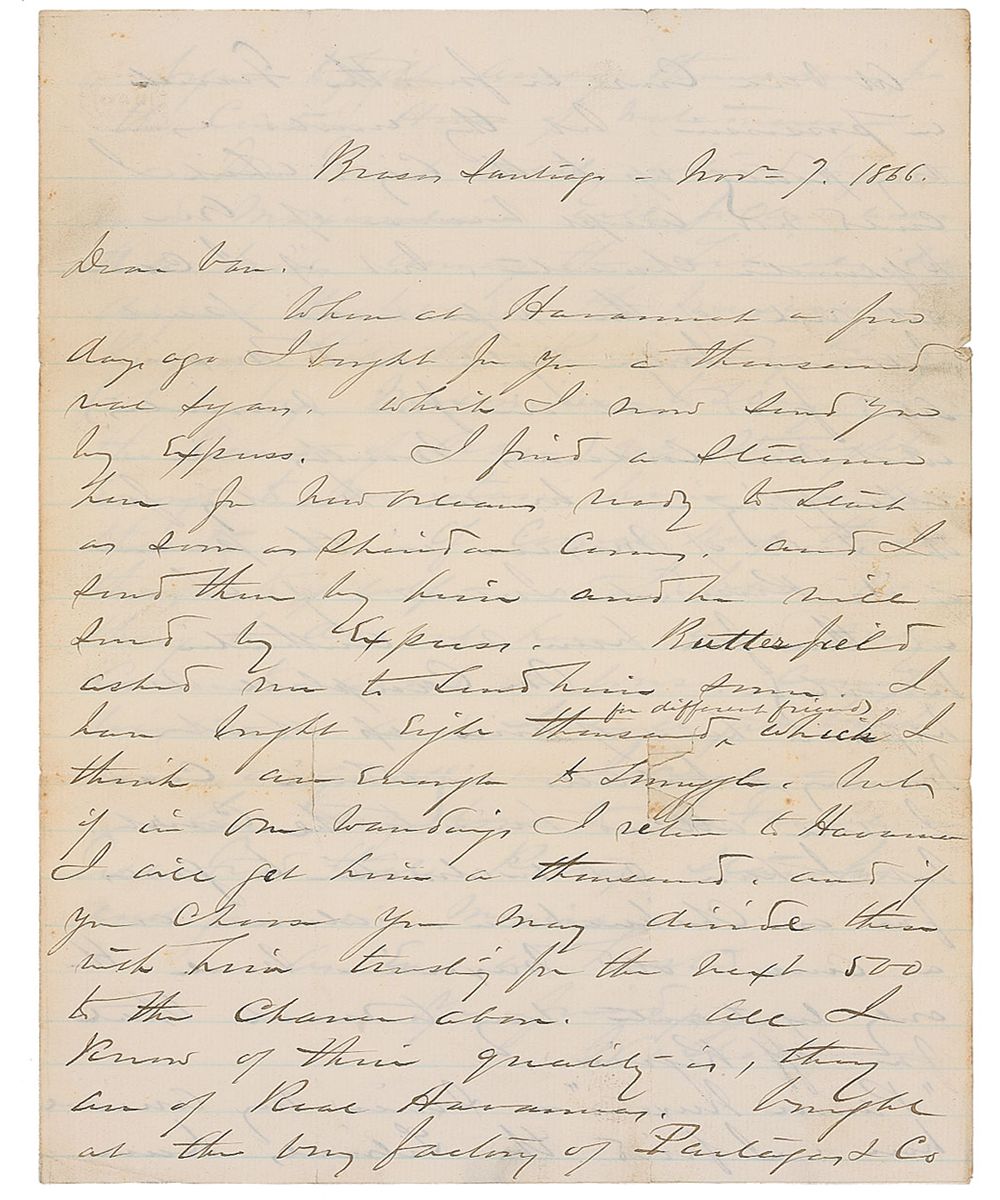 Brasos Santiago - Nov - 7. 1866.
Dear Van.
When at Havannah a few
days ago I bought for you a thousand
real segars. which I now send you
by Express. I find a Steamer
here for New Orleans ready to start
as soon as Sheridan comes. and I
send them by him and he will
send by Express. Butterfield
asked me to send him some. I
for different friends
have bought eight thousand, which I
think are enough to smuggle. but
if in our wandings I return to Havanna
I will get him a thousand. and if
you choose you may divide these
with him trusting for the next 500
to the chance above. All I
know of their quality is, they
are of Real Havannas. bought
at the very factory of Partagas & Co